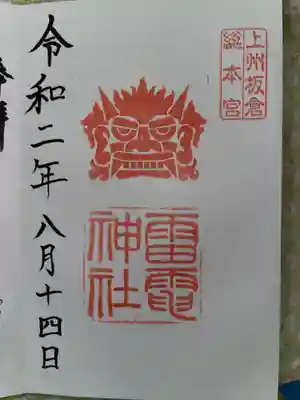 上州板倉
総本宮
雷電
神社
令和二年八月十四日
拝